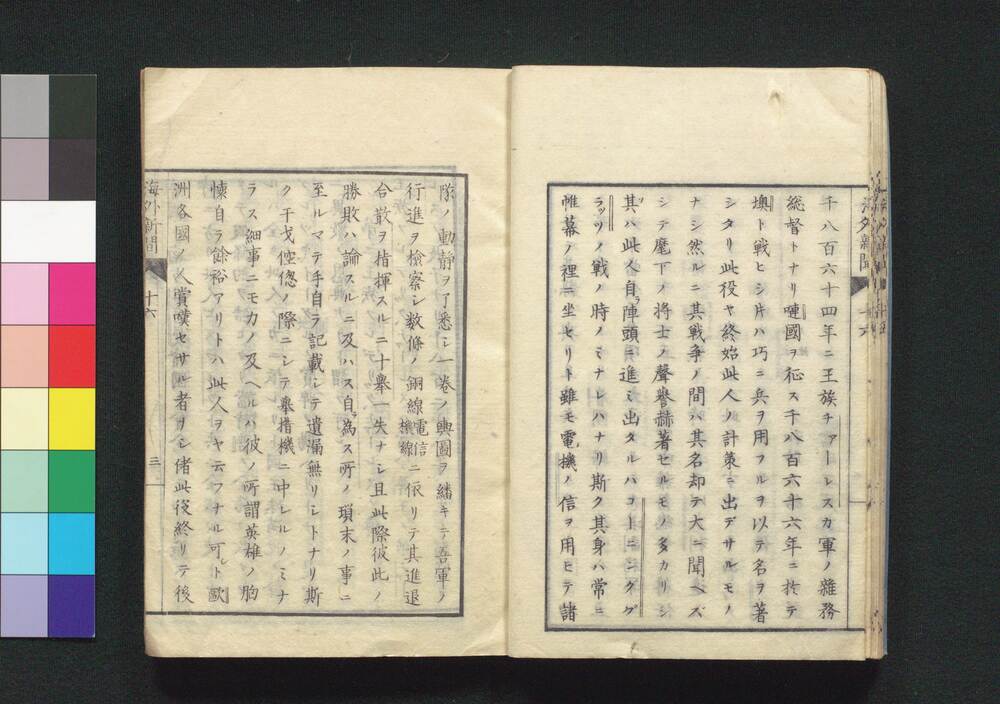 千八百六十四年ニ王族チァーレスカ軍ノ雑務
総督トナリ嗹國ヲ征ス千八百六十六年ニ於テ
墺ト戦ヒシ片ハ巧ニ兵ヲ用フルヲ以テ名ヲ著
シタリ此役ヤ終始此人ノ計策ニ出デサルモノ
ナシ然ルニ其戦争ノ間ハ其名却テ大ニ聞ヘズ
シテ麾下ノ将士ノ聲譽赫著セルモノ多カリシ
其ハ此人自ラ陣頭ニ進ミ出タルハコーニンググ
ラッツノ戦ノ時ノミナレハナリ斯ク其身ハ常ニ
帷幕ノ裡ニ坐セリト雖モ電機ノ信ヲ用ヒテ諸
隊ノ動静ヲ了悉シ一巻ノ輿圖ヲ繙キテ吾軍ノ
行進ヲ檢察シ数條ノ銅線電信機線ニ依リテ其進退
合散ヲ指揮スルニ十擧一失ナシ且此際彼此ノ
勝敗ハ論スルニ及ハス自ラ為ス所ノ瑣末ノ事ニ
至ルマテ手自ラ記載シテ遺漏無リシトナリ斯
ク干戈倥偬ノ際ニシテ擧措機ニ中レルノミナ
ラス細事ニモ力ノ及ヘルハ彼ノ所謂英雄ノ胸
懐自ラ餘裕アリトハ此人ヲヤ云フナル可シト歐
洲各國ノ人賞嘆セサル者ヲシ偖此役終リテ後
海外新聞 十六 三